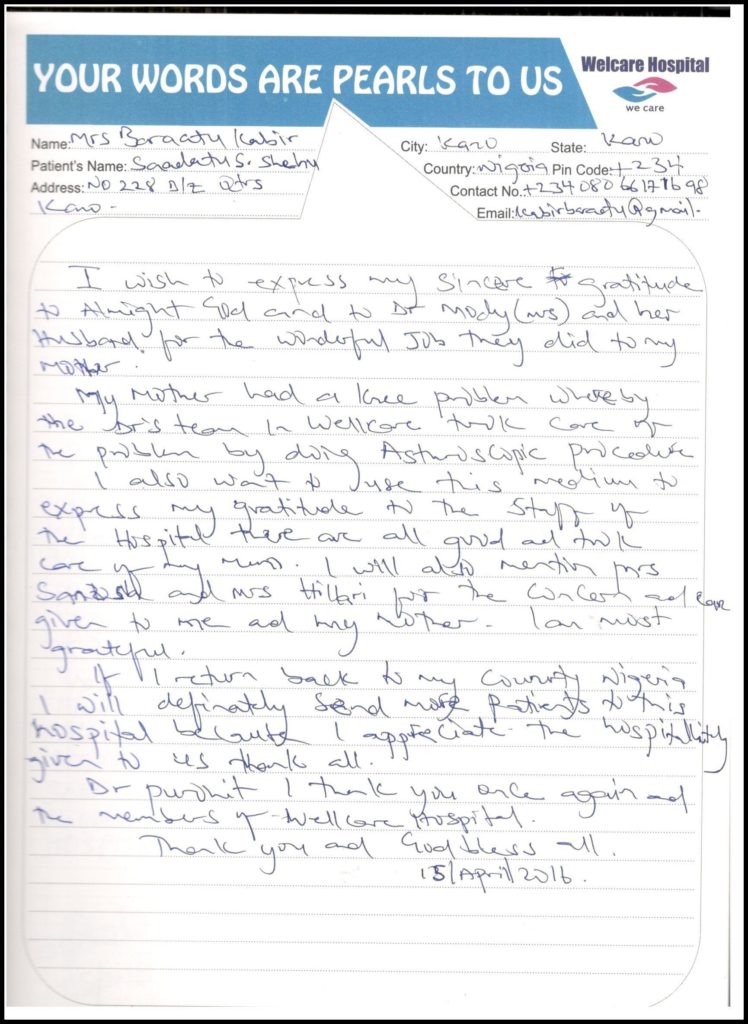 YOUR WORDS ARE PEARLS TO US
Welcare Hospital
we care
Name: Mrs Baraatu Kabir
City: Kano State: Kano
Patient's Name: Saadatu S. Shehu
Country: Nigeria Pin Code: +234
Address: No 228 D/Z Qtrs
Contact No. +234 080 66171698
Kano -
Email: kabirbaraatu@gmail.
I wish to express my sincere gratitude
to Almight God and to Dr Mody (mrs) and her
Husband. for the wonderful Job they did to my
Mother.
My Mother had a knee problem whereby
the Dr's team in Wellcare took care of
the problem by doing Asthroscopic procedure
I also want to use this medium to
express my gratitude to the Staff of
the Hospital there are all good ad took
care of my Mum. I will also mention mrs
and mrs Hillari for the Concern ad care
given to me ad my Mother - I am most
grateful.
If I return back to my Country Nigeria
I will definately Send more patients to this
hospital because I appreciate the hospitallity
given to us thank all.
Dr purohit I thank you once again and
the members of Wellcare Hospital.
Thank you ad God bless all.
15/April/2016.